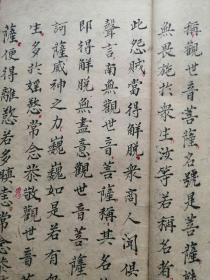 稱觀世音菩薩名號是菩薩
無畏施於衆生汝等若稱名者
此怨賊當得解脫衆商人聞俱
聲言南無觀世音菩薩稱其名
即得解脫無盡意觀世音菩薩
訶薩威神之力巍巍如是若有
生多於婬慾常念恭敬觀世音菩
薩便得離慾若多瞋恚常念